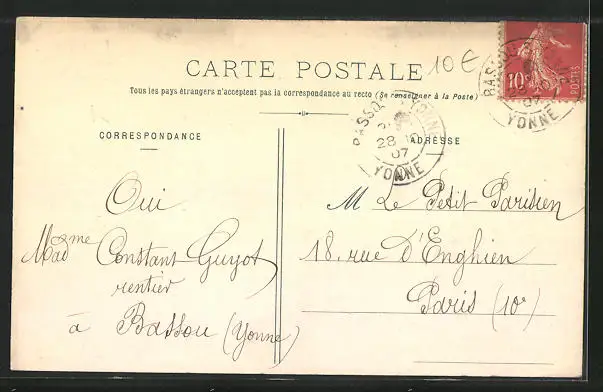 CARTE POSTALE
10€
Tous les pays étrangers n'acceptent pas la correspondance au recto (Se renseigner à la Poste)
CORRESPONDANCE
Oui
Madme Constant Guyot
rentier
à Bassou (Yonne)
ADRESSE
M Le Petit Parisien
18, rue D'Enghien
Paris (10e)
BASSOU YONNE
28
07
YONNE
10c
POSTES
BASSOU
07
YONNE